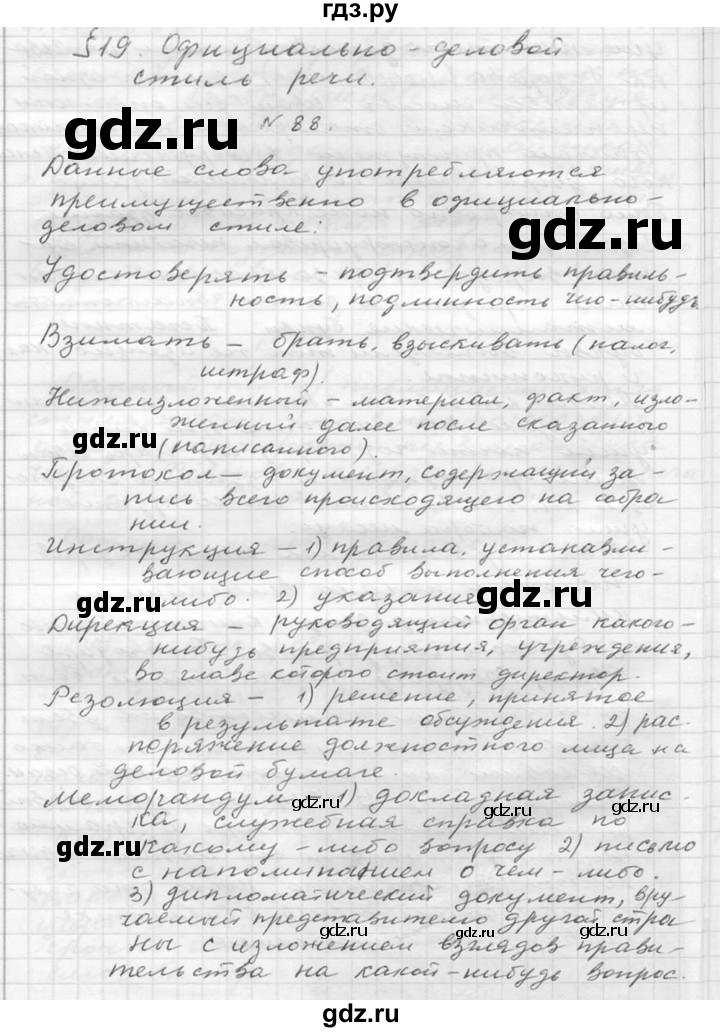 гдз.ру
§19. Официально-деловой
стиль речи.
gdz.ru
N 88.
Данные слова употребляются
преимущественно в официально-
деловом стиле:
gdz.ru
Удостоверять – подтвердить правиль-
ность, подлинность чего-нибудь.
Взимать – брать, взыскивать (налог,
штраф).
Нижеизложенный – материал, факт, изло-
женный далее после сказанного
gdz.ru
(написанного).
Протокол – документ, содержащий за-
пись всего происходящего на собра
нии.
Инструкция – 1) правила, устанавли-
вающие способ выполнения чего-
gdz.ru
либо. 2) указание
gdz.ru
Дирекция – руководящий орган какого-
нибудь предприятия, учреждения,
во главе которого стоит директор.
Резолюция – 1) решение, принятое
в результате обсуждения. 2) рас-
поряжение должностного лица на
деловой бумаге.
Меморандум – 1) докладная запис-
gdz.ru
ка, служебная справка по
gdz.ru
какому-либо вопросу 2) письмо
gdz.ru
с напоминанием о чем-либо.
3) дипломатический документ, вру-
чаемый представителю другой стро
gdz.ru
gdz.ru
ны с изложением взглядов прави-
тельства на какой-нибудь вопрос.
gdz.ru